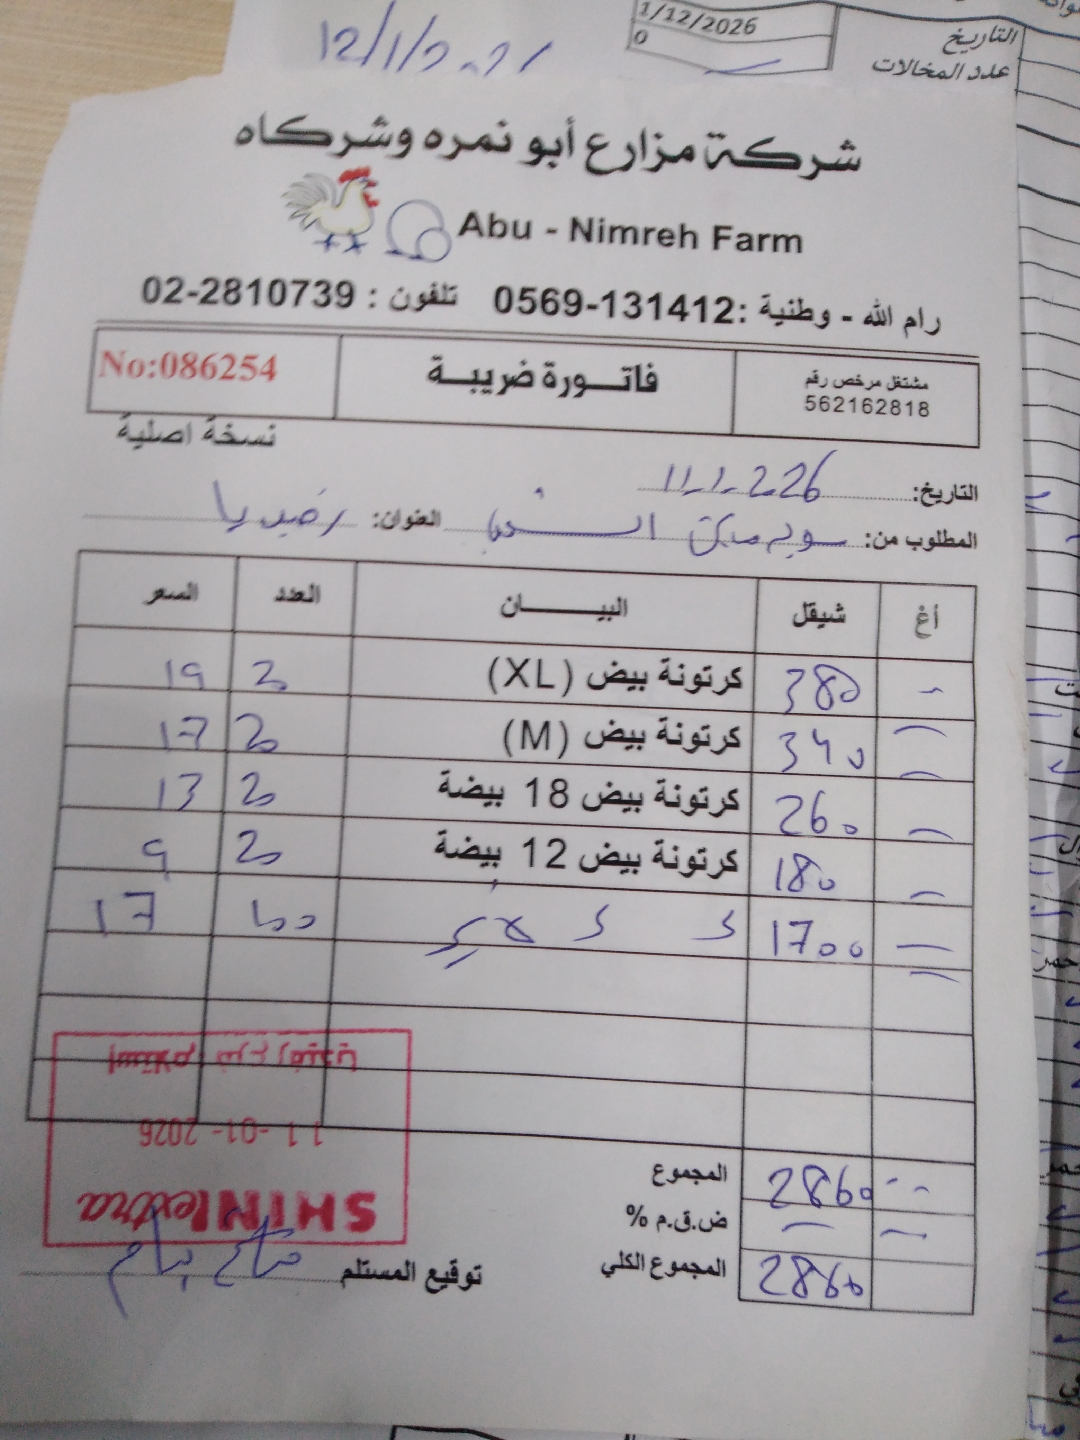 12/1/2026
1/12/2026
التاريخ
0
عدد المخالات
شركة مزارع أبو نمره وشركاه
Abu - Nimreh Farm
رام الله - وطنية :0569-131412 تلفون : 02-2810739
مشتغل مرخص رقم
562162818
فاتـــورة ضريبــة
No:086254
نسخة اصلية
التاريخ: 11.1.2026
المطلوب من: سوبر ماركت العنوان: رفيديا
أغ شيقل البيـــــــان العدد السعر
- 380 كرتونة بيض (XL) 20 19
- 340 كرتونة بيض (M) 20 17
- 260 كرتونة بيض 18 بيضة 20 13
- 180 كرتونة بيض 12 بيضة 20 9
- 1700 100 17
المجموع 2860 --
ض.ق.م % - -
المجموع الكلي 2860
توقيع المستلم
SHINIextra
11-01-2026
استلام فرع رفيديا